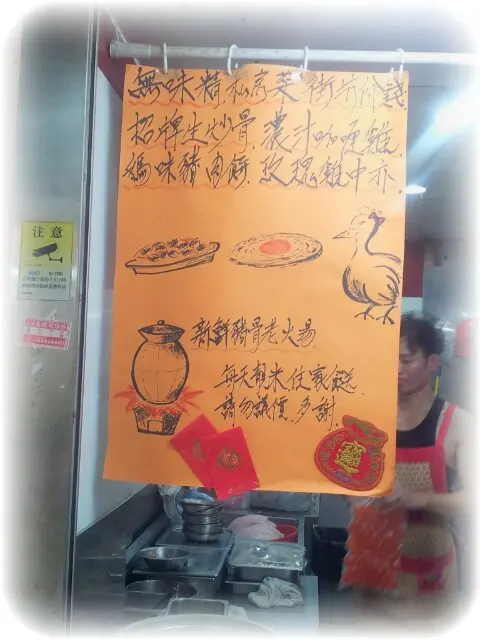 無味精私房菜 街坊价錢
招牌生炒骨.濃汁咖喱雞.
媽味豬肉餅.玫瑰雞中亦.
新鮮豬骨老火湯
每天靚米住家飯
請勿議價.多謝.
注意